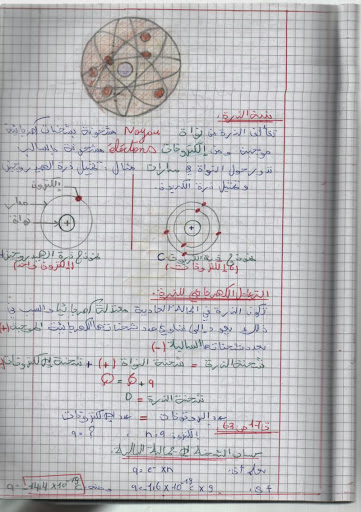 بنية الذرة:
تتألف الذرة من نواة Noyau مشحونة بشحنات كهربائية
موجبة ومن إلكترونات électrons مشحونة بالسالب
تدور حول النواة في مدارات مثال: تمثيل ذرة الهيدروجين
وتمثيل ذرة الكربون.
إلكترون
مدار
نواة
نموذج ذرة الكربون C
نموذج ذرة الهيدروجين
(إلكترونات)
(إلكترون واحد)
التعادل الكهربائي للذرة:
تكون الذرة في الحالة العادية متعادلة كهربائيا والسبب في
ذلك يعود إلى عدد شحناتها الكهربائية الموجبة (+)
بعدد شحناتها السالبة (-)
شحنة الذرة = شحنة النواة (+) + شحنة الإلكترونات
شحنة الذرة = 0
عدد البروتونات = عدد الإلكترونات
ت 17 ص 63
q = ? n = 9 إلكترون
حساب الشحنة
q = e⁻ × n
q = -1,6 × 10⁻¹⁹ × 9
q = -14,4 × 10⁻¹⁹ C